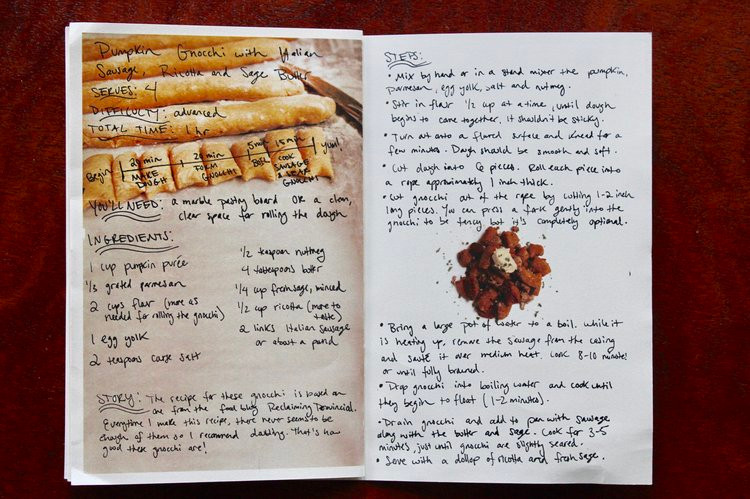 Pumpkin Gnocchi with Italian
Sausage, Ricotta and Sage Butter
SERVES: 4
DIFFICULTY: advanced
TOTAL TIME: 1 hr
Begin
20 min
MAKE
DOUGH
20 min
FORM
GNOCCHI
5 min
BOIL
15 min
COOK
SAUSAGE
& SEAR
GNOCCHI
Yum!
YOU'LL NEED: a marble pastry board OR a clean,
clear space for rolling the dough
INGREDIENTS:
1 cup pumpkin purée
1/3 grated parmesan
2 cups flour (more as
needed for rolling the gnocchi)
1 egg yolk
2 teaspoons coarse salt
1/2 teaspoon nutmeg
4 tablespoons butter
1/4 cup fresh sage, minced
1/2 cup ricotta (more to
taste)
2 links Italian Sausage
or about a pound
STORY: The recipe for these gnocchi is based on
one from the food blog Reclaiming Provincial.
Everytime I make this recipe, there never seems to be
enough of them so I recommend doubling. That's how
good these gnocchi are!
STEPS:
• Mix by hand or in a stand mixer the pumpkin,
parmesan, egg yolk, salt and nutmeg.
• Stir in flour 1/2 cup at a time, until dough
begins to come together. It shouldn't be sticky.
• Turn out onto a floured surface and knead for a
few minutes. Dough should be smooth and soft.
• Cut dough into 6 pieces. Roll each piece into
a rope approximately 1 inch thick.
• Cut gnocchi out of the rope by cutting 1-2 inch
long pieces. You can press a fork gently into the
gnocchi to be fancy but it's completely optional.
• Bring a large pot of water to a boil. While it
is heating up, remove the sausage from the casing
and sauté it over medium heat. Cook 8-10 minutes
or until fully browned.
• Drop gnocchi into boiling water and cook until
they begin to float (1-2 minutes).
• Drain gnocchi and add to pan with sausage
along with the butter and sage. Cook for 3-5
minutes, just until gnocchi are slightly seared.
• Serve with a dollop of ricotta and fresh sage.